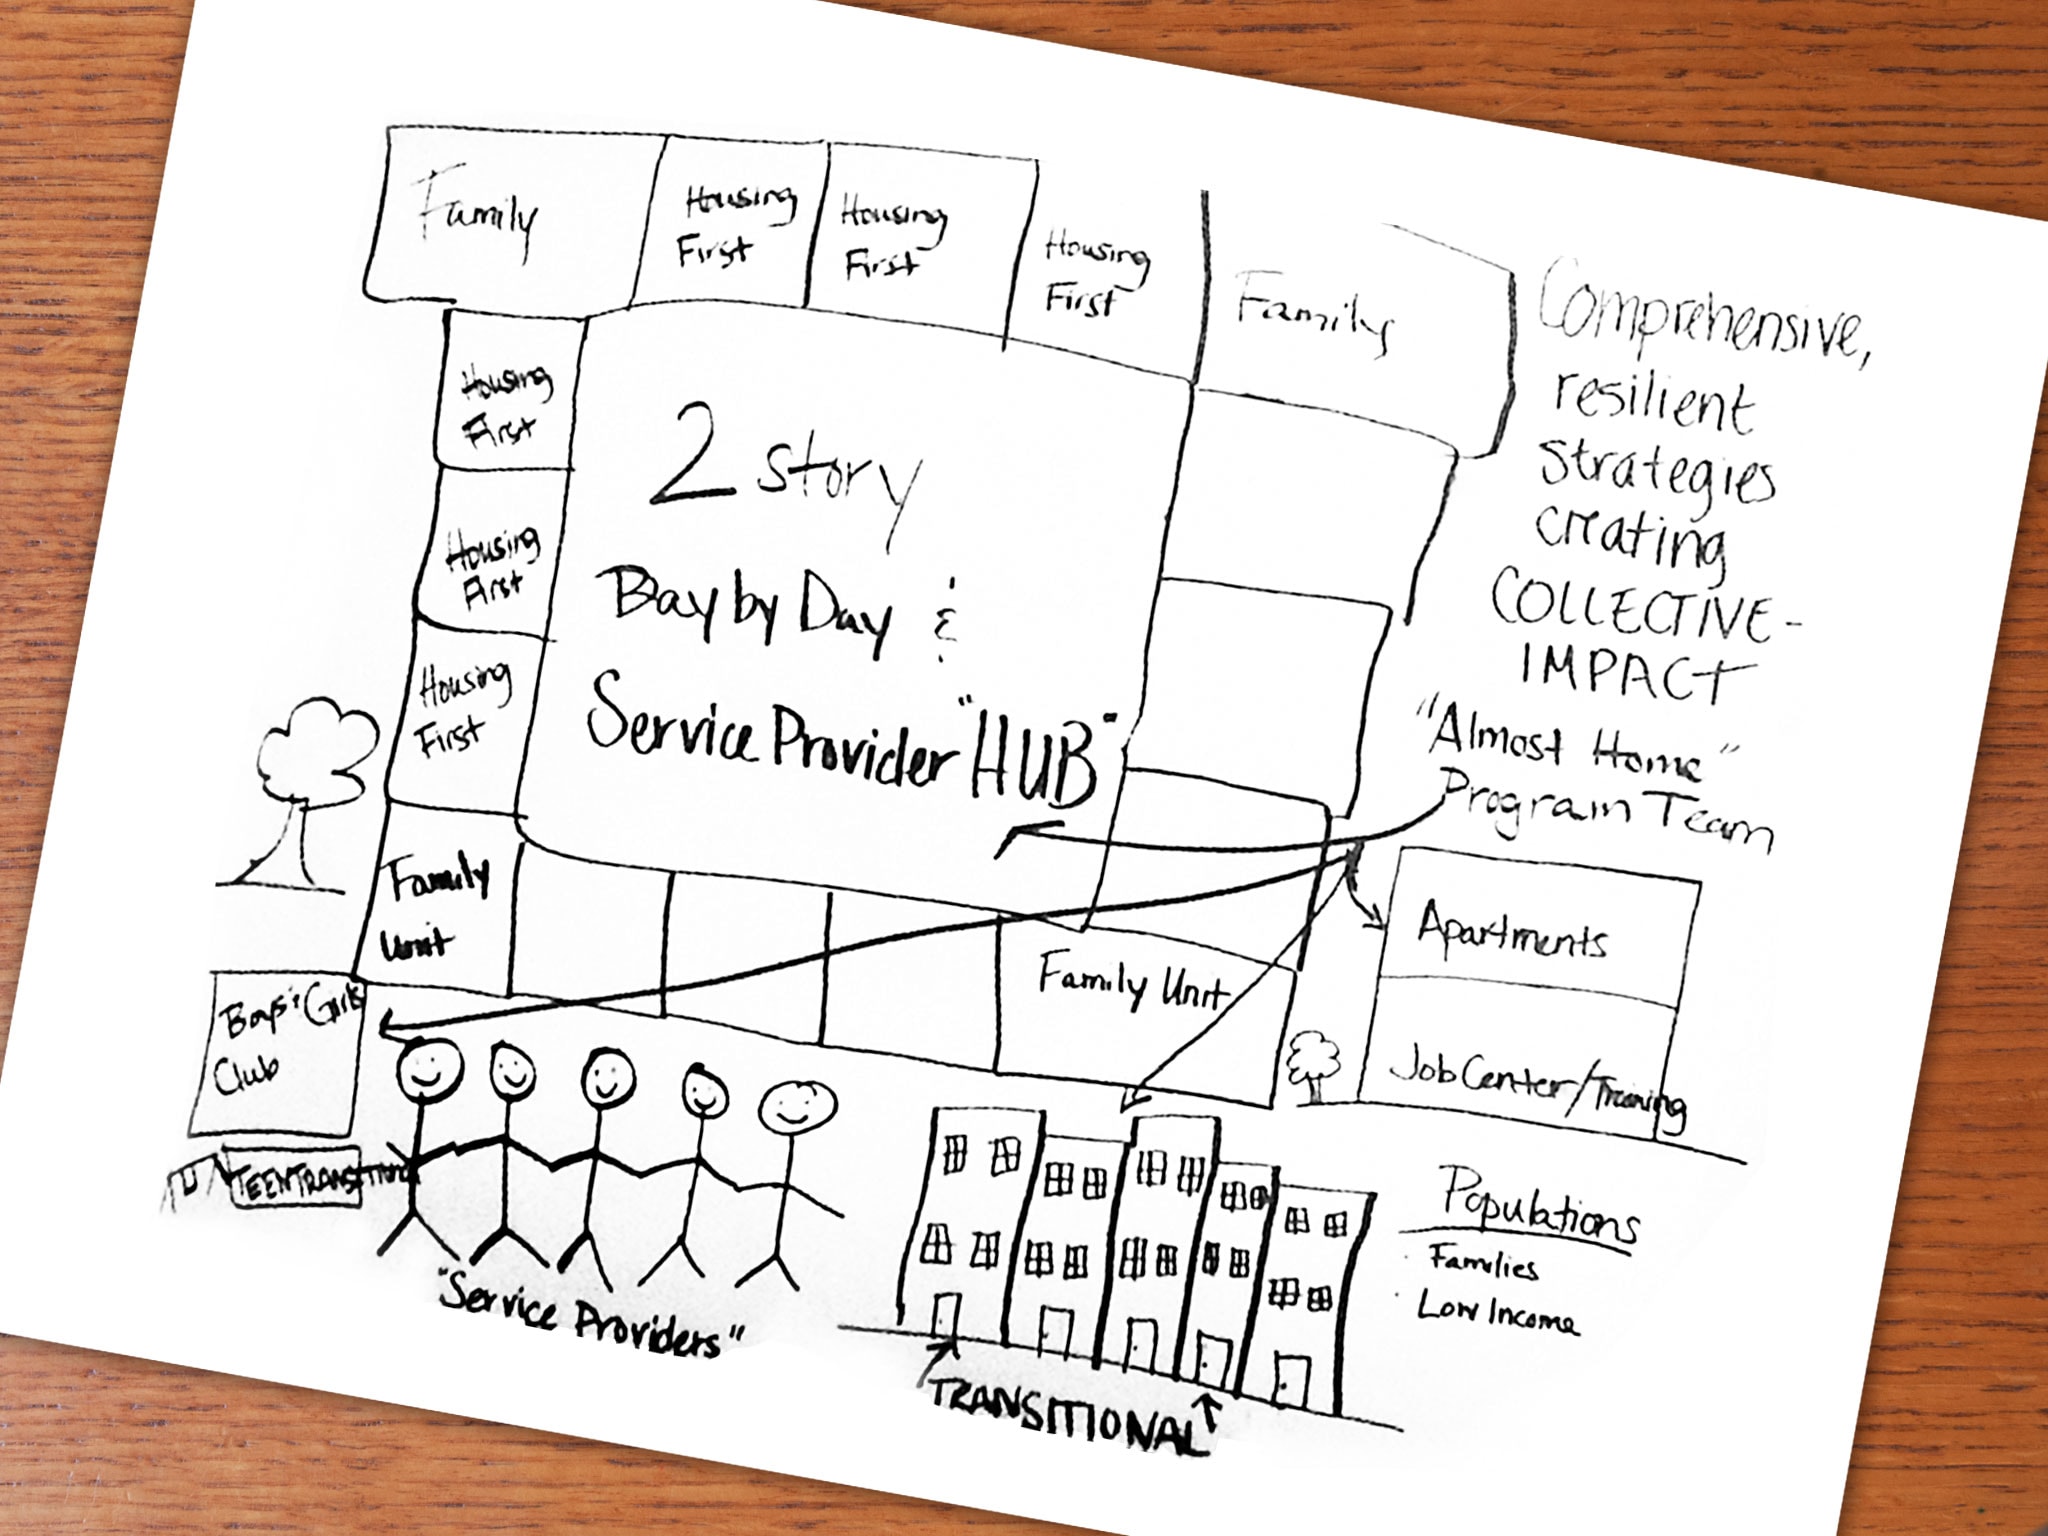 Family
Housing
First
Housing
First
Housing
First
Family
Housing
First
Housing
First
Housing
First
Family
Unit
2 story
Bay by Day &
Service Provider "HUB"
Family Unit
Comprehensive,
resilient
strategies
creating
COLLECTIVE-
IMPACT
"Almost Home"
Program Team
Apartments
Job Center/Training
Boys & Girls
Club
TEEN TRANSITIONAL
"Service Providers"
TRANSITIONAL
Populations
· Families
· Low Income